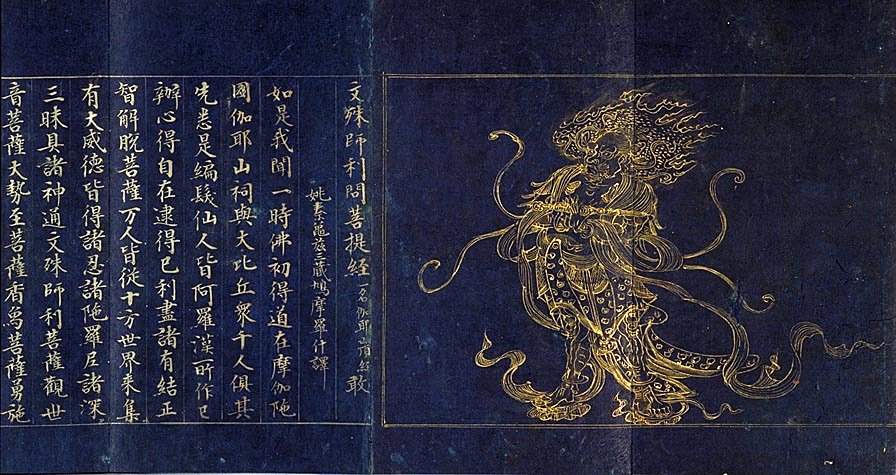 文殊師利問菩提經一名伽耶山頂經 敢
姚秦龜茲三藏鳩摩羅什譯
如是我聞一時佛初得道在摩伽陁
國伽耶山祠與大比丘衆千人俱其
先悉是編髮仙人皆阿羅漢所作已
辦心得自在逮得已利盡諸有結正
智解脫菩薩万人皆從十方世界来集
有大威德皆得諸忍諸陁羅尼諸深
三昧具諸神通文殊師利菩薩觀世
音菩薩大勢至菩薩香烏菩薩勇施